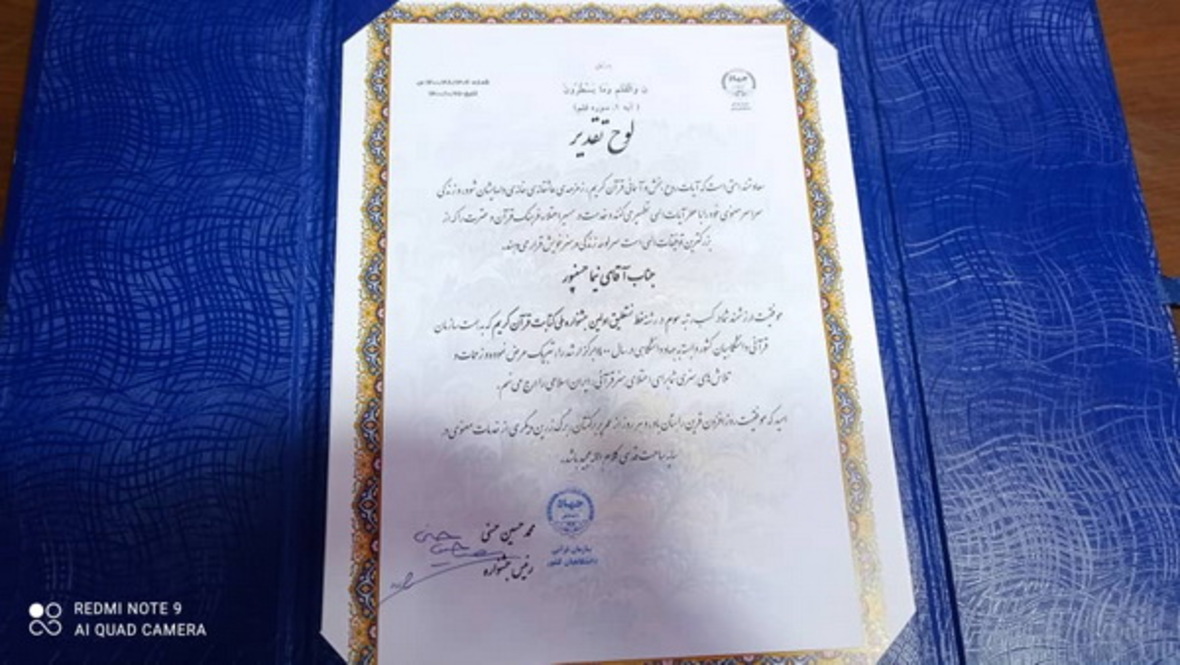 ن وَالْقَلَمِ وَمَا يَسْطُرُونَ
( آیه ۱، سوره قلم)
لوح تقدیر
سعادتمند امتی است که آیات روح بخش و آسمانی قرآن کریم، زمزمه‌ی عاشقانه‌ی خانه‌ی دلهایشان شود و زندگی
سراسر معنوی خود را با عطر آیات الهی تطهیر می کنند و خدمت در مسیر اعتلاء فرهنگ قرآن و عترت را که از
بزرگترین توفیقات الهی است سرلوحه زندگی و هنر خویش قرار می دهند.
جناب آقای نیما حسنپور
موفقیت ارزشمند شما در کسب رتبه سوم در رشته خط نستعلیق اولین جشنواره ملی کتابت قرآن کریم که به همت سازمان
قرآنی دانشگاهیان کشور وابسته به جهاد دانشگاهی در سال ۱۴۰۰ برگزار شد را تبریک عرض نموده و زحمات و
تلاش های هنری شما برای اعتلای هنر قرآنی در ایران اسلامی را ارج می نهیم.
امید که موفقیت روزافزون قرین راهتان باد و هر روز از عمر پر برکتتان، برگ زرین دیگری از خدمات معنوی در
سایه ساحت قدسی کلام الله مجید باشد.
جهاد
سازمان قرآنی
دانشگاهیان کشور
محمد حسین حسنی
رئیس جشنواره
REDMI NOTE 9
AI QUAD CAMERA